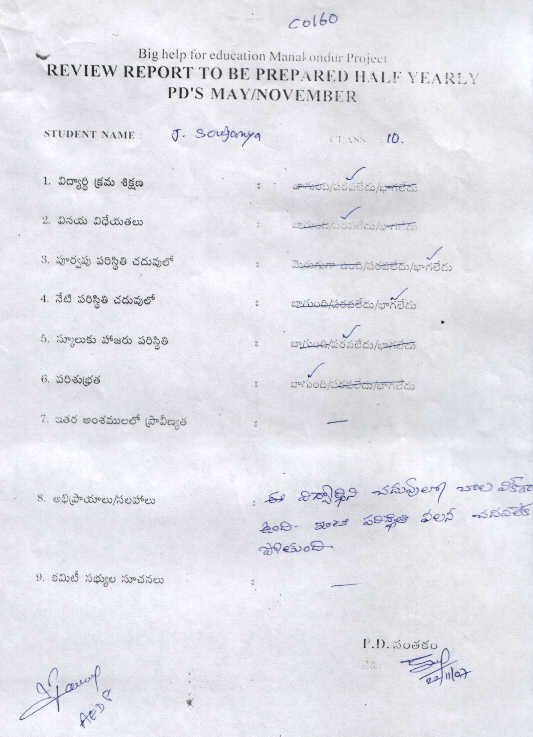 C0160
Big help for education Manakondur Project
REVIEW REPORT TO BE PREPARED HALF YEARLY
PD'S MAY/NOVEMBER
STUDENT NAME : J. Soujanya CLASS : 10.
1. విద్యార్థి క్రమ శిక్షణ : బాగుంది/పరవలేదు/భాగలేదు
2. వినయ విధేయతలు : బాగుంది/పరవలేదు/భాగలేదు
3. పూర్వపు పరిస్థితి చదువులో : మెరుగుగా ఉంది/పరవలేదు/భాగలేదు
4. నేటి పరిస్థితి చదువులో : బాగుంది/పరవలేదు/భాగలేదు
5. స్కూలుకు హాజరు పరిస్థితి : బాగుంది/పరవలేదు/భాగలేదు
6. పరిశుభ్రత : బాగుంది/పరవలేదు/భాగలేదు
7. ఇతర అంశములలో ప్రావీణ్యత : —
8. అభిప్రాయాలు/సలహాలు : ఈ చదువులో చాల
ఉంది. ఇంటి పరిస్థితి వలన
పోతుంది.
9. కమిటీ సభ్యుల సూచనలు : —
P.D. సంతకం
22/11/07